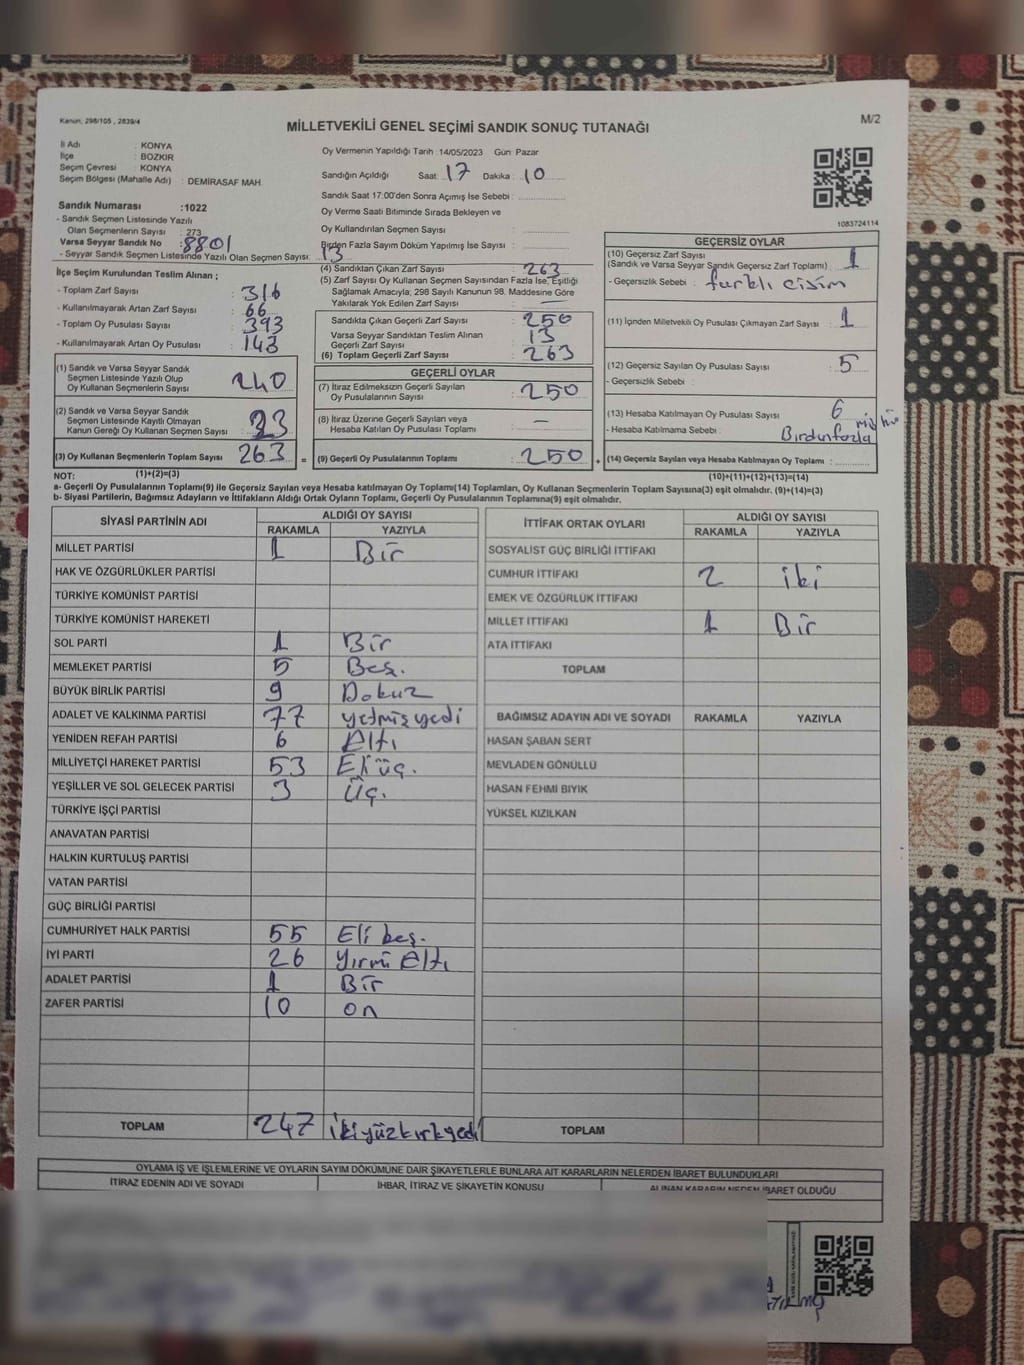 Kanun, 298/105 , 2839/4
M/2
MİLLETVEKİLİ GENEL SEÇİMİ SANDIK SONUÇ TUTANAĞI
İl Adı : KONYA
İlçe : BOZKIR
Seçim Çevresi : KONYA
Seçim Bölgesi (Mahalle Adı) : DEMİRASAF MAH.
Sandık Numarası :1022
- Sandık Seçmen Listesinde Yazılı
Olan Seçmenlerin Sayısı : 273
Varsa Seyyar Sandık No : 8801
- Seyyar Sandık Seçmen Listesinde Yazılı Olan Seçmen Sayısı: 13
İlçe Seçim Kurulundan Teslim Alınan ;
- Toplam Zarf Sayısı : 316
- Kullanılmayarak Artan Zarf Sayısı : 66
- Toplam Oy Pusulası Sayısı : 393
- Kullanılmayarak Artan Oy Pusulası : 143
(1) Sandık ve Varsa Seyyar Sandık
Seçmen Listesinde Yazılı Olup
Oy Kullanan Seçmenlerin Sayısı : 240
(2) Sandık ve Varsa Seyyar Sandık
Seçmen Listesinde Kayıtlı Olmayan
Kanun Gereği Oy Kullanan Seçmen Sayısı : 23
(3) Oy Kullanan Seçmenlerin Toplam Sayısı : 263 =
Oy Vermenin Yapıldığı Tarih :14/05/2023 Gün: Pazar
Sandığın Açıldığı Saat: 17 Dakika : 10
Sandık Saat 17:00'den Sonra Açımış İse Sebebi :
Oy Verme Saati Bitiminde Sırada Bekleyen ve
Oy Kullandırılan Seçmen Sayısı :
Birden Fazla Sayım Döküm Yapılmış İse Sayısı :
(4) Sandıktan Çıkan Zarf Sayısı : 263
(5) Zarf Sayısı Oy Kullanan Seçmen Sayısından Fazla İse, Eşitliği
Sağlamak Amacıyla, 298 Sayılı Kanunun 98. Maddesine Göre
Yakılarak Yok Edilen Zarf Sayısı : —
Sandıkta Çıkan Geçerli Zarf Sayısı : 250
Varsa Seyyar Sandıktan Teslim Alınan
Geçerli Zarf Sayısı : 13
(6) Toplam Geçerli Zarf Sayısı : 263
GEÇERLİ OYLAR
(7) İtiraz Edilmeksizin Geçerli Sayılan
Oy Pusulalarının Sayısı : 250
(8) İtiraz Üzerine Geçerli Sayılan veya
Hesaba Katılan Oy Pusulası Toplamı : —
(9) Geçerli Oy Pusulalarının Toplamı : 250 +
1083724114
GEÇERSİZ OYLAR
(10) Geçersiz Zarf Sayısı
(Sandık ve Varsa Seyyar Sandık Geçersiz Zarf Toplamı) : 1
- Geçersizlik Sebebi : farklı cisim
(11) İçinden Milletvekili Oy Pusulası Çıkmayan Zarf Sayısı : 1
(12) Geçersiz Sayılan Oy Pusulası Sayısı : 5
- Geçersizlik Sebebi :
(13) Hesaba Katılmayan Oy Pusulası Sayısı : 6
- Hesaba Katılmama Sebebi : Birdenfazla mühür
(14) Geçersiz Sayılan veya Hesaba Katılmayan Oy Toplamı :
NOT: (1)+(2)=(3) (10)+(11)+(12)+(13)=(14)
a- Geçerli Oy Pusulalarının Toplamı(9) ile Geçersiz Sayılan veya Hesaba katılmayan Oy Toplamı(14) Toplamları, Oy Kullanan Seçmenlerin Toplam Sayısına(3) eşit olmalıdır. (9)+(14)=(3)
b- Siyasi Partilerin, Bağımsız Adayların ve İttifakların Aldığı Ortak Oyların Toplamı, Geçerli Oy Pusulalarının Toplamına(9) eşit olmalıdır.
SİYASİ PARTİNİN ADI ALDIĞI OY SAYISI
RAKAMLA YAZIYLA
MİLLET PARTİSİ 1 Bir
HAK VE ÖZGÜRLÜKLER PARTİSİ
TÜRKİYE KOMÜNİST PARTİSİ
TÜRKİYE KOMÜNİST HAREKETİ
SOL PARTİ 1 Bir
MEMLEKET PARTİSİ 5 Beş.
BÜYÜK BİRLİK PARTİSİ 9 Dokuz
ADALET VE KALKINMA PARTİSİ 77 yetmişyedi
YENİDEN REFAH PARTİSİ 6 Altı
MİLLİYETÇİ HAREKET PARTİSİ 53 Eliüç.
YEŞİLLER VE SOL GELECEK PARTİSİ 3 Üç.
TÜRKİYE İŞÇİ PARTİSİ
ANAVATAN PARTİSİ
HALKIN KURTULUŞ PARTİSİ
VATAN PARTİSİ
GÜÇ BİRLİĞİ PARTİSİ
CUMHURİYET HALK PARTİSİ 55 Eli beş.
İYİ PARTİ 26 Yirmi Altı
ADALET PARTİSİ 1 Bir
ZAFER PARTİSİ 10 on
TOPLAM 247 ikiyüzkırkyedi
İTTİFAK ORTAK OYLARI ALDIĞI OY SAYISI
RAKAMLA YAZIYLA
SOSYALİST GÜÇ BİRLİĞİ İTTİFAKI
CUMHUR İTTİFAKI 2 iki
EMEK VE ÖZGÜRLÜK İTTİFAKI
MİLLET İTTİFAKI 1 Bir
ATA İTTİFAKI
TOPLAM
BAĞIMSIZ ADAYIN ADI VE SOYADI RAKAMLA YAZIYLA
HASAN ŞABAN SERT
MEVLADEN GÖNÜLLÜ
HASAN FEHMİ BIYIK
YÜKSEL KIZILKAN
TOPLAM
OYLAMA İŞ VE İŞLEMLERİNE VE OYLARIN SAYIM DÖKÜMÜNE DAİR ŞİKAYETLERLE BUNLARA AİT KARARLARIN NELERDEN İBARET BULUNDUKLARI
İTİRAZ EDENİN ADI VE SOYADI İHBAR, İTİRAZ VE ŞİKAYETİN KONUSU ALINAN KARARIN NEDEN İBARET OLDUĞU